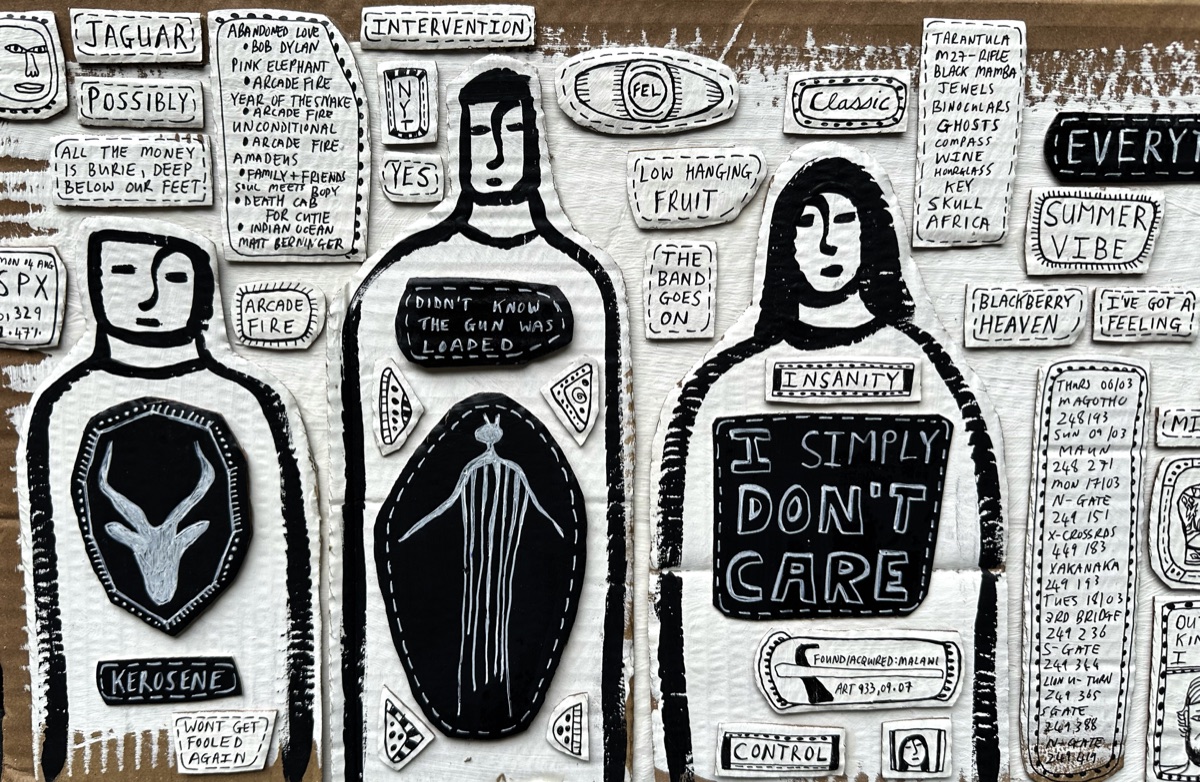 JAGUAR
POSSIBLY
ALL THE MONEY
IS BURIE, DEEP
BELOW OUR FEET!
ABANDONED LOVE
• BOB DYLAN
PINK ELEPHANT
• ARCADE FIRE
YEAR OF THE SNAKE
• ARCADE FIRE
UNCONDITIONAL
• ARCADE FIRE
AMADEUS
• FAMILY + FRIENDS
SOUL MEETS BODY
• DEATH CAB
FOR CUTIE
• INDIAN OCEAN
MATT BERNINGER
INTERVENTION
NYT
YES
FEL
LOW HANGING
FRUIT
THE
BAND
GOES
ON
Classic
TARANTULA
M27-RIFLE
BLACK MAMBA
JEWELS
BINOCULARS
GHOSTS
COMPASS
WINE
HOURGLASS
KEY
SKULL
AFRICA
EVERY
SUMMER
VIBE
BLACKBERRY
HEAVEN
I'VE GOT A
FEELING
MON 04 AUG
SPX
,329
.47%
ARCADE
FIRE
DIDN'T KNOW
THE GUN WAS
LOADED
G
INSANITY
I SIMPLY
DON'T
CARE
KEROSENE
WONT GET
FOOLED
AGAIN
FOUND/ACQUIRED: MALAWI
ART 933,09.07
CONTROL
THURS 06/03
MAGOTHO
248 193
SUN 09/03
MAUN
248 271
MON 17/03
N-GATE
249 151
X-CROSSRDS
449 183
XAKANAKA
249 193
TUES 18/03
3RD BRIDGE
249 236
S-GATE
249 364
LION U-TURN
249 365
S GATE
249 388
N-GATE
249 419
MI
OU
KI
I